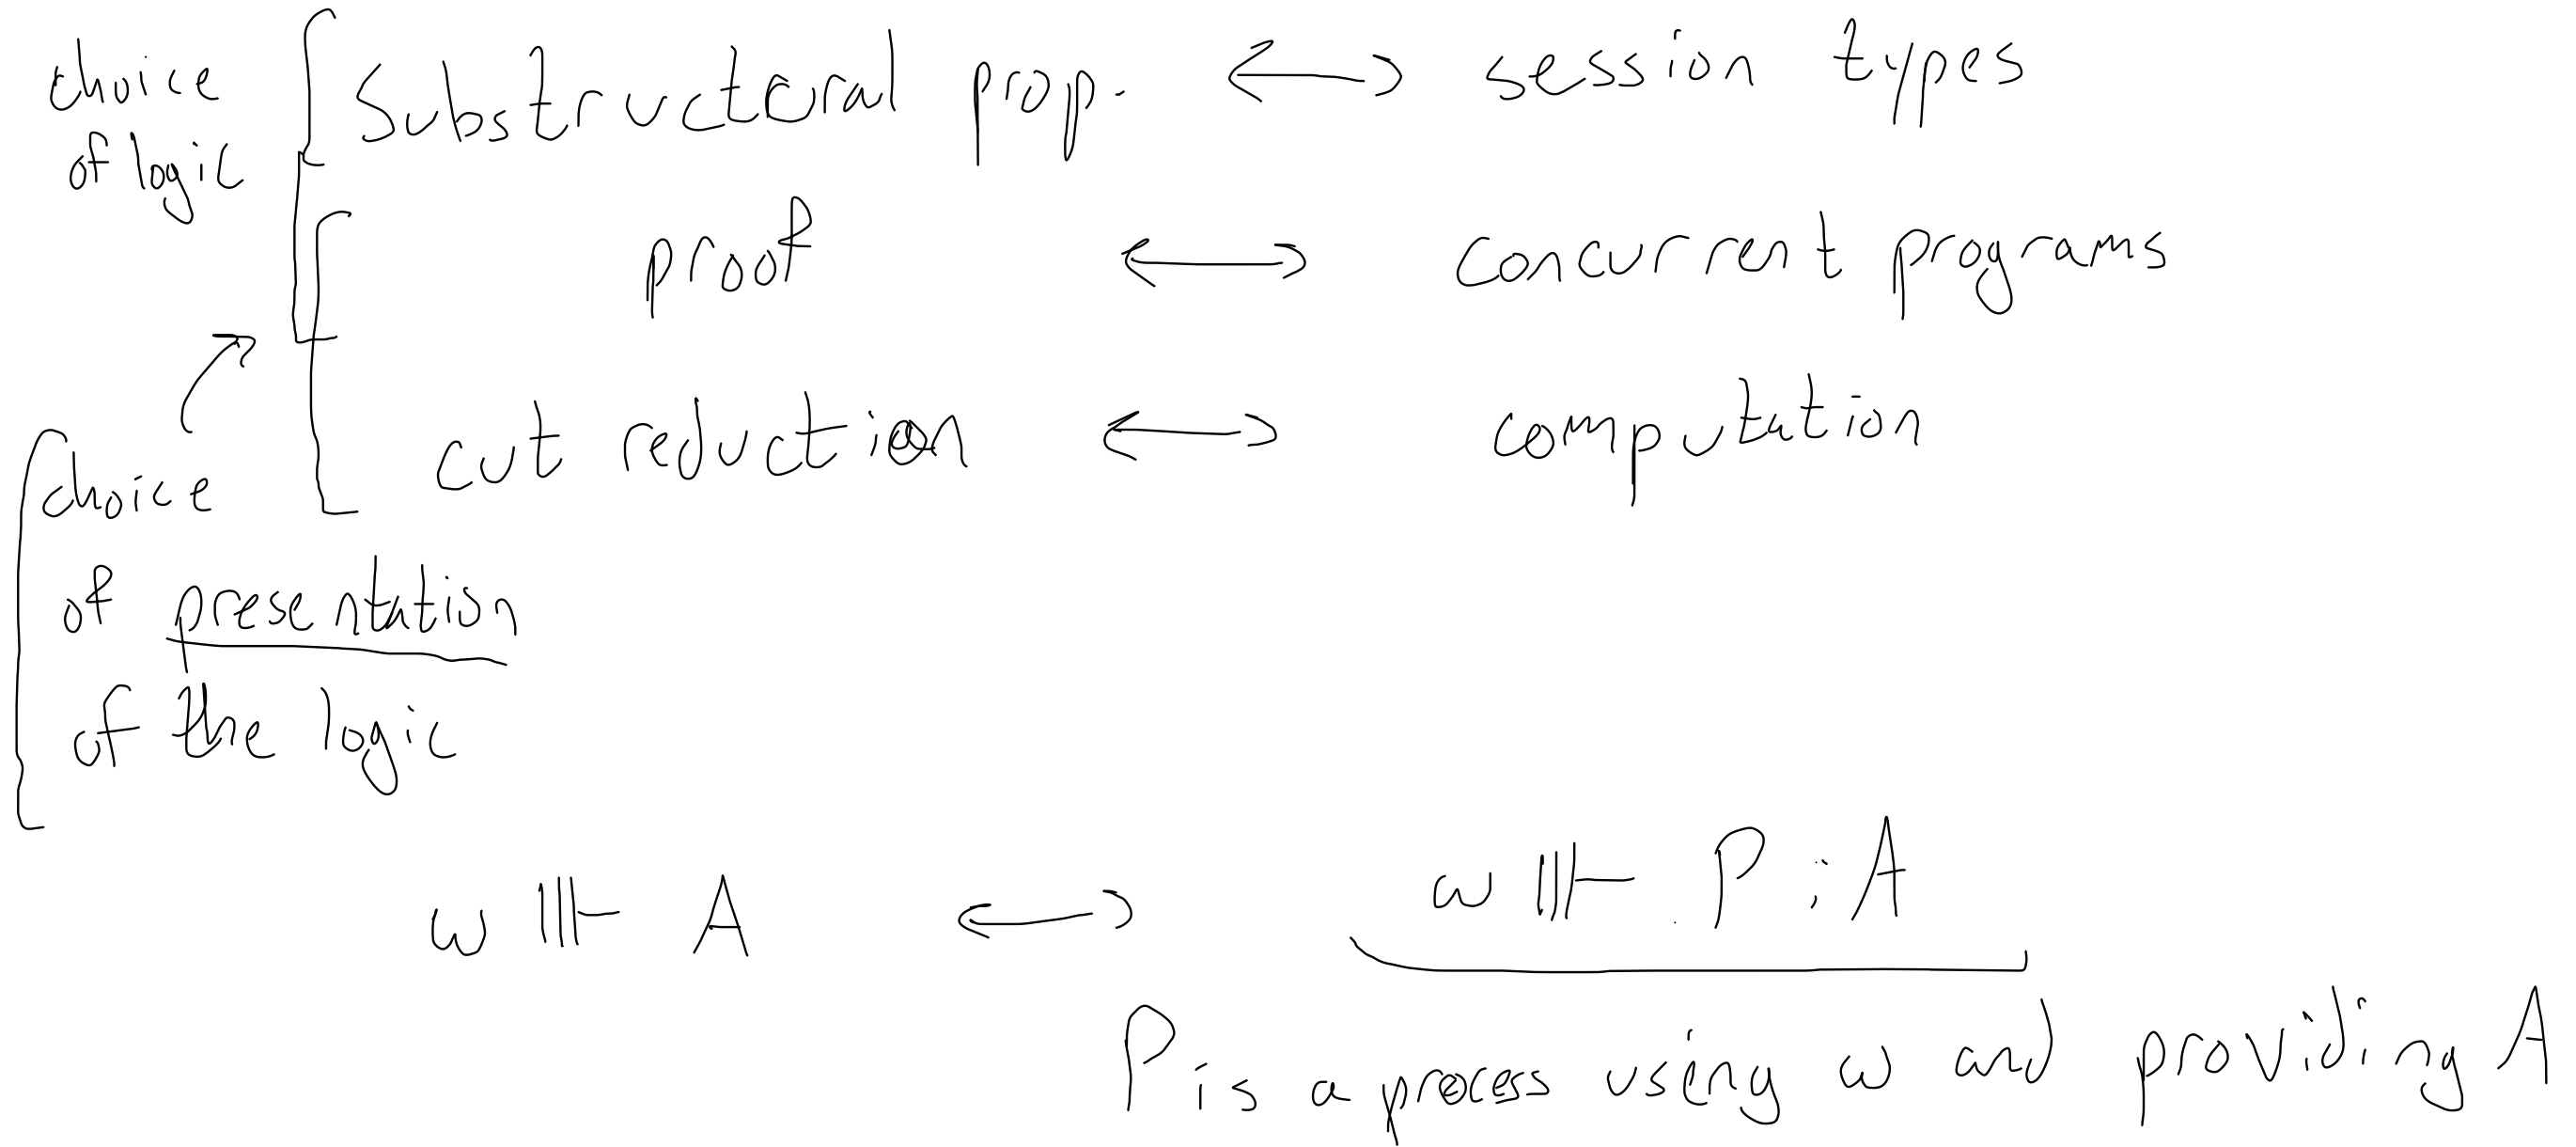 choice of logic
Substructural prop. ⟷ session types
proof ⟷ concurrent programs
cut reduction ⟷ computation
choice
of presentation
of the logic
ω ⊪ A ⟷ ω ⊪ P : A
P is a process using ω and providing A